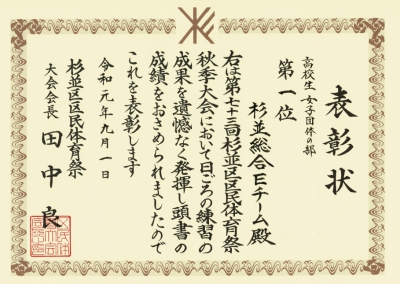 表彰状
高校生 女子団体の部
第一位
杉並総合Eチーム殿
右は第七十三回杉並区区民体育祭
秋季大会において日ごろの練習の
成果を遺憾なく発揮し頭書の
成績をおさめられましたので
これを表彰します
令和元年九月一日
杉並区区民体育祭
大会会長 田中良